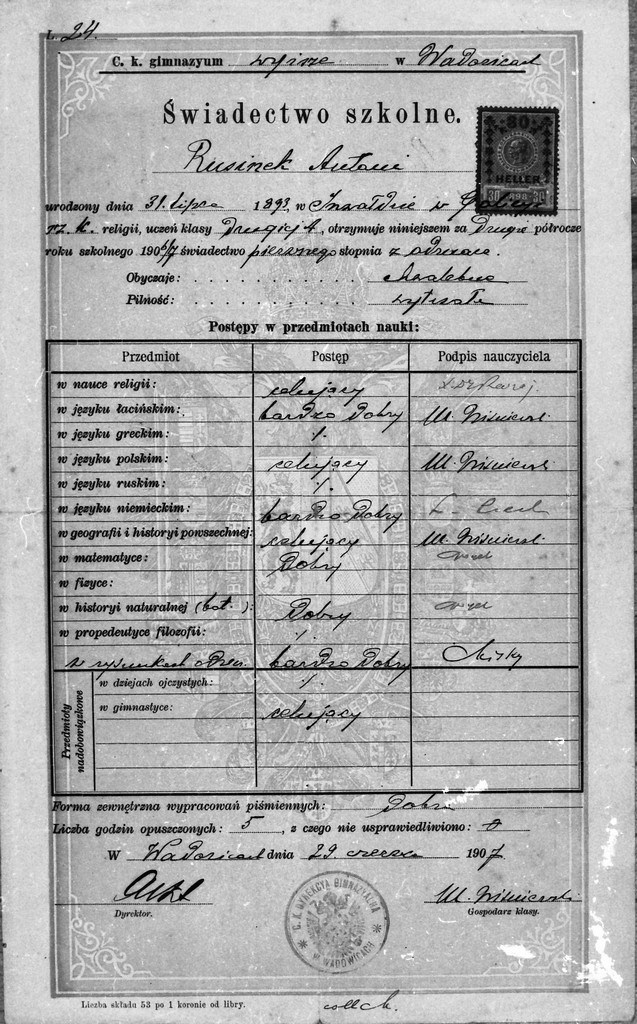 L. 24.
C. k. gimnazyum wyższe w Wadowicach
Świadectwo szkolne.
30
HELLER
30 1898 30
Rusinek Antoni
urodzony dnia 31 lipca 1893, w Inwałdzie w Galicyi
rz. k. religii, uczeń klasy Drugiej A, otrzymuje niniejszem za Drugie półrocze
roku szkolnego 1906/7 świadectwo pierwszego stopnia z odznacz.
Obyczaje: chwalebne
Pilność: wytrwała
Postępy w przedmiotach nauki:
Przedmiot Postęp Podpis nauczyciela
w nauce religii: celujący
w języku łacińskim: bardzo Dobry M. Wiśniewski
w języku greckim: ·/.
w języku polskim: celujący M. Wiśniewski
w języku ruskim: ·/.
w języku niemieckim: bardzo Dobry
w geografii i historyi powszechnej: celujący M. Wiśniewski
w matematyce: Dobry
w fizyce:
w historyi naturalnej (bot. ): Dobry
w propedeutyce filozofii: ·/.
w rysunkach bardzo Dobry
Przedmioty nadobowiązkowe
w dziejach ojczystych: ·/.
w gimnastyce: celujący
Forma zewnętrzna wypracowań piśmiennych: Dobra
Liczba godzin opuszczonych: 5, z czego nie usprawiedliwiono: 0
W Wadowicach dnia 29 czerwca 1907
M. Wiśniewski
Dyrektor. Gospodarz klasy.
C. K. DYREKCYA GIMNAZYALNA
W WADOWICACH
Liczba składu 53 po 1 koronie od libry.